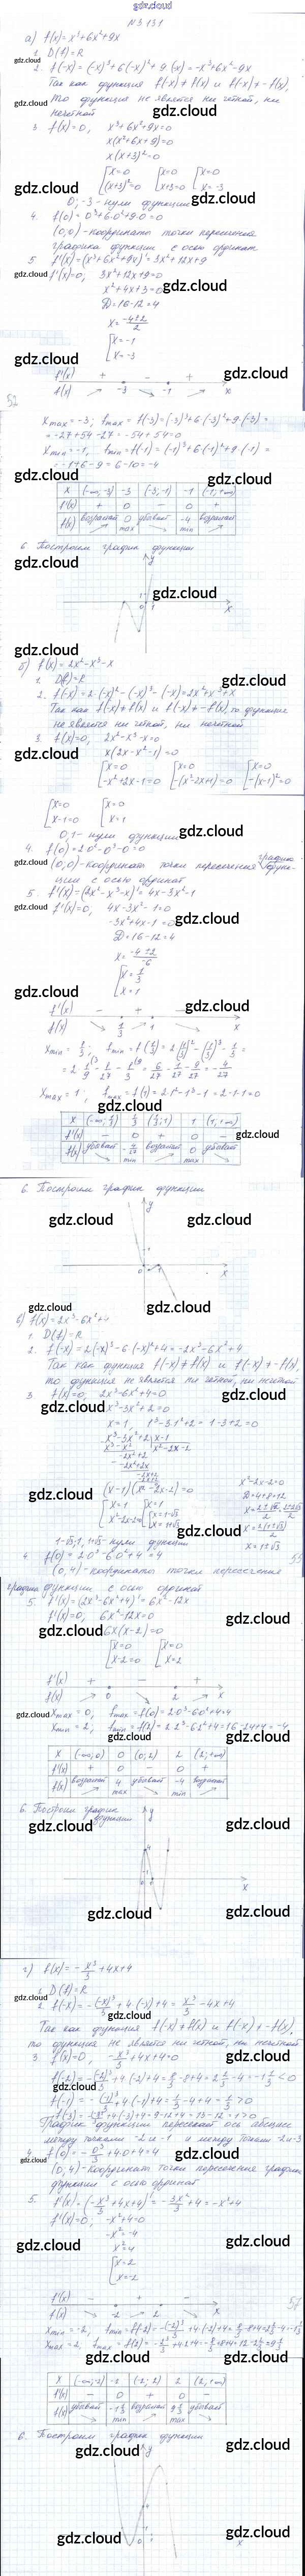 gdz.cloud
№3 131
а) f(x)=x³+6x²+9x
1. D(f)=R
2. f(-x)=(-x)³+6(-x)²+9·(-x)=-x³+6x²-9x
Так как функция f(-x)≠f(x) и f(-x)≠-f(x),
то функция не является ни чётной, ни
нечётной
3. f(x)=0, x³+6x²+9x=0
x(x²+6x+9)=0
x(x+3)²=0
[x=0 [x=0 [x=0
(x+3)²=0 x+3=0 x=-3
0; -3 - нули функции
4. f(0)=0³+6·0²+9·0=0
(0,0)-координаты точки пересечения
графика функции с осью ординат
5. f'(x)=(x³+6x²+9x)'=3x²+12x+9
f'(x)=0, 3x²+12x+9=0
x²+4x+3=0
D=16-12=4
x=(-4±2)/2
[x=-1
x=-3
f'(x) + - +
f(x) -3 -1 x
52
x max=-3; f max=f(-3)=(-3)³+6·(-3)²+9·(-3)=
=-27+54-27=-54+54=0
x min=-1, f min=f(-1)=(-1)³+6(-1)²+9·(-1)=
=-1+6-9=6-10=-4
x (-∞,-3) -3 (-3;-1) -1 (-1;+∞)
f'(x) + 0 - 0 +
f(x) возрастает 0 max убывает -4 min возрастает
6. Построим график функции
y
1
0
x
б) f(x)=2x²-x³-x
1. D(f)=R
2. f(-x)=2·(-x)²-(-x)³-(-x)=2x²+x³+x
Так как f(-x)≠f(x) и f(-x)≠-f(x), то функция
не является ни чётной, ни нечётной
3. f(x)=0, 2x²-x³-x=0
x(2x-x²-1)=0
[x=0 [x=0 [x=0
-x²+2x-1=0 -(x²-2x+1)=0 -(x-1)²=0
[x=0 [x=0
x-1=0 x=1
0;1- нули функции
4. f(0)=2·0²-0³-0=0
(0,0)-координаты точки пересечения графика функ-
ции с осью ординат
5. f'(x)=(2x²-x³-x)'=4x-3x²-1
f'(x)=0, 4x-3x²-1=0
-3x²+4x-1=0
D=16-12=4
x=(-4±2)/-6
[x=1/3
x=1
f'(x) - + -
f(x) 1/3 1 x
x min=1/3; f min=f(1/3)=2·(1/3)²-(1/3)³-1/3=
=2·1/9-1/27-1/3=6/27-1/27-9/27=-4/27
x max=1, f max=f(1)=2·1²-1³-1=2-1-1=0
x (-∞;1/3) 1/3 (1/3;1) 1 (1;+∞)
f'(x) - 0 + 0 -
f(x) убывает -4/27 min возрастает 0 max убывает
6. Построим график функции
y
1
0
x
в) f(x)=2x³-6x²+4
1. D(f)=R
2. f(-x)=2(-x)³-6(-x)²+4=-2x³-6x²+4
Так как функция f(-x)≠f(x) и f(-x)≠-f(x),
то функция не является ни чётной, ни нечётной
3. f(x)=0, 2x³-6x²+4=0
x³-3x²+2=0
x=1, 1³-3·1²+2=1-3+2=0
x³-3x²+2 | x-1
x³-x² x²-2x-2
-2x²+2
-2x²+2x
-2x+2
-2x+2
(x-1)(x²-2x-2)=0
[x=1 [x=1
x²-2x-2=0 x=1-√3
x=1+√3
x²-2x-2=0
D=4+8=12
x=(2±√12)/2=(2±2√3)/2
x=2(1±√3)/2
x=1±√3
1-√3;1,1+√3- нули функции
4. f(0)=2·0³-6·0²+4=4
(0,4)-координаты точки пересечения
55
графика функции с осью ординат
5. f'(x)=(2x³-6x²+4)'=6x²-12x
f'(x)=0, 6x²-12x=0
6x(x-2)=0
[x=0 [x=0
x-2=0 x=2
f'(x) + - +
f(x) 0 2 x
x max=0, f max=f(0)=2·0³-6·0²+4=4
x min=2, f min=f(2)=2·2³-6·2²+4=16-24+4=-4
x (-∞;0) 0 (0;2) 2 (2;+∞)
f'(x) + 0 - 0 +
f(x) возрастает 4 max убывает -4 min возрастает
6. Построим график
функции
y
4
x
г) f(x)=-x³/3+4x+4
1. D(f)=R
2. f(-x)=-(-x)³/3+4·(-x)+4=x³/3-4x+4
Так как функция f(-x)≠f(x) и f(-x)≠-f(x),
то функция не является ни чётной, ни нечётной
3. f(x)=0, -x³/3+4x+4=0
f(-2)=-(-2)³/3+4·(-2)+4=8/3-8+4=2 2/3-4=-1 1/3<0
f(-1)=-(-1)³/3+4·(-1)+4=1/3-4+4=1/3>0
График функции пересекает ось абсцисс
между точками -2 и -1 и между точками
4. f(0)=-0³/3+4·0+4=4
(0,4)-координаты точки пересечения графика
функции с осью ординат
5. f'(x)=(-x³/3+4x+4)'=-3x²/3+4=-x²+4
f'(x)=0, -x²+4=0
-x²=-4
x²=4
[x=2
x=-2
f'(x) - + -
f(x) -2 2 x
57
x min=-2, f min=f(-2)=-(-2)³/3+4·(-2)+4=8/3-8+4=2 2/3-4=-1 1/3
x max=2, f max=f(2)=-2³/3+4·2+4=-8/3+8+4=12-2 2/3=9 1/3
x (-∞;-2) -2 (-2;2) 2 (2;+∞)
f'(x) - 0 + 0 -
f(x) убывает -1 1/3 min возрастает 9 1/3 max убывает
6. Построим график функции
y
x